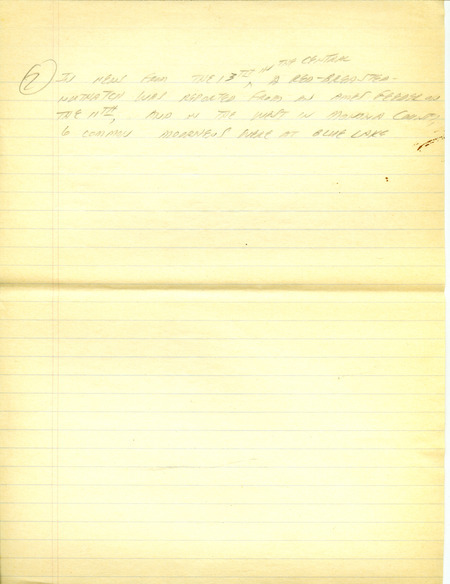 in the central
② In news from the 13th, a red-breasted-
nuthatch was reported from an Ames feeder on
the 11th, and in the west in Monona County
6 common moorhens were at Blue Lake